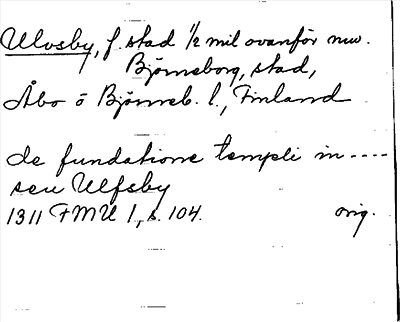 Ulvsby, f. stad 1/2 mil ovanför nuv.
Björneborg, stad,
Åbo o Björneb. l., Finland
de fundatione templi in ----
seu Ulfsby
1311 FMU 1, s. 104. orig.